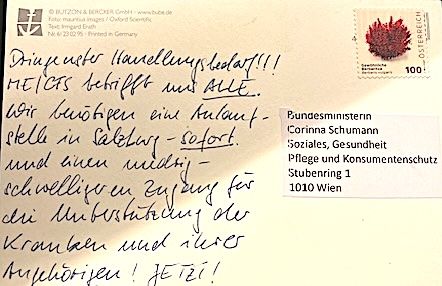 © BUTZON & BERCKER GmbH · www.bube.de
Foto: mauritius images / Oxford Scientific
Text: Irmgard Erath
Nr. 6/23 02 95 · Printed in Germany
Dringenster Handlungsbedarf!!!
ME/CFS betrifft uns ALLE.
Wir benötigen eine Anlauf-
stelle in Salzburg - sofort.
und einen niedrig-
schwelligeren Zugang für
die Unterstützung der
Kranken und ihrer
Angehörigen! JETZT!
Gewöhnliche
Berberitze
berberis vulgaris
100
ÖSTERREICH
Bundesministerin
Corinna Schumann
Soziales, Gesundheit
Pflege und Konsumentenschutz
Stubenring 1
1010 Wien